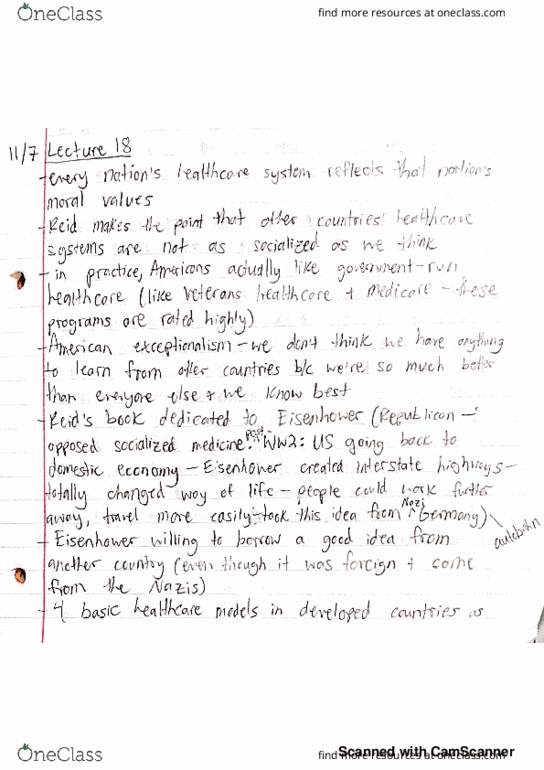 OneClass
find more resources at oneclass.com
11/7 Lecture 18
- every nation's healthcare system reflects that nation's
moral values
- Reid makes the point that other countries' healthcare
systems are not as socialized as we think
- in practice, Americans actually like government-run
healthcare (like Veterans healthcare + medicare - these
programs are rated highly)
- American exceptionalism - we don't think we have anything
to learn from other countries b/c we're so much better
than everyone else + we know best
- Reid's book dedicated to Eisenhower (Republican -
opposed socialized medicine. Post WW2: US going back to
domestic economy - Eisenhower created interstate highways -
totally changed way of life - people could work further
away, travel more easily - took this idea from Nazi Germany)
autobahn
- Eisenhower willing to borrow a good idea from
another country (even though it was foreign + came
from the Nazis)
- 4 basic healthcare models in developed countries as
OneClass
find more resources at oneclass.com
Scanned with CamScanner